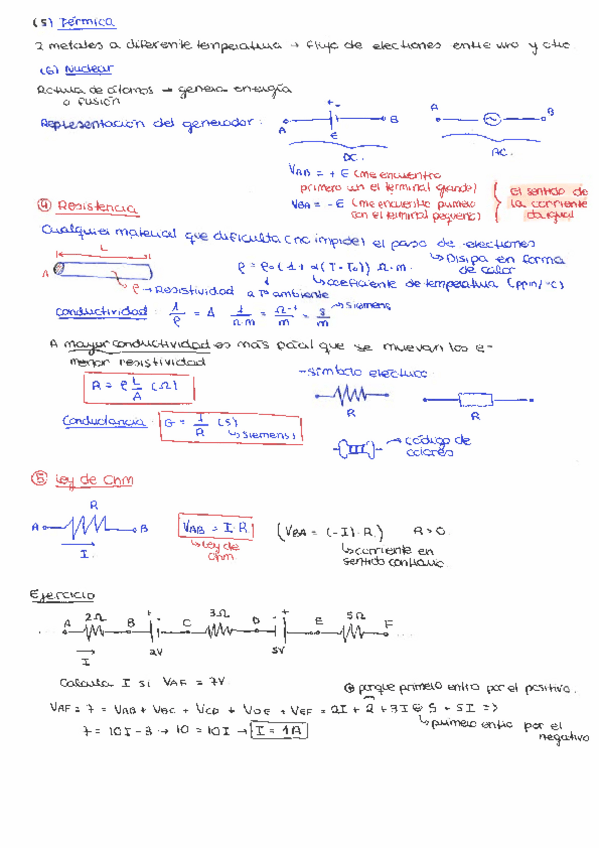 (5) Térmica
2 metales a diferente temperatura → flujo de electrones entre uno y otro
(6) Nuclear
Rotura de átomos → genera energía
o fusión
Representación del generador:
A + - B
E
DC.
A B
AC.
VAB = + E (me encuentro
primero con el terminal grande)
VBA = - E (me encuentro primero
con el terminal pequeño)
El sentido de
la corriente
da igual
④ Resistencia
Cualquier material que dificulta (no impide) el paso de electrones
↳ Disipa en forma
de calor
L
A
ρ → Resistividad a Tª ambiente
ρ = ρ₀ (1 + α(T - T₀)) Ω·m.
↳ coeficiente de temperatura (ppm/ºC)
Conductividad: 1/ρ = Δ 1/Ω·m = Ω⁻¹/m = S/m → Siemens
A mayor conductividad es más fácil que se muevan los e-
menor resistividad
R = ρ L/A (Ω)
- símbolo eléctrico
R
R
Conductancia: G = 1/R (S)
↳ Siemens
→ código de
colores
⑤ Ley de Ohm
R
A B
I
VAB = I·R
↳ Ley de
Ohm
(VBA = (-I)·R) R > 0
↳ corriente en
sentido contrario
Ejercicio
A 2Ω B + - C 3Ω D - + E 5Ω F
I
2V
5V
Calcula I si VAF = 7V.
⊕ porque primero entro por el positivo.
VAF = 7 = VAB + VBC + VCD + VDE + VEF = 2I + 2 + 3I ⊖ 5 + 5I =>
↳ primero entro por el
negativo
7 = 10I - 3 → 10 = 10I → I = 1A